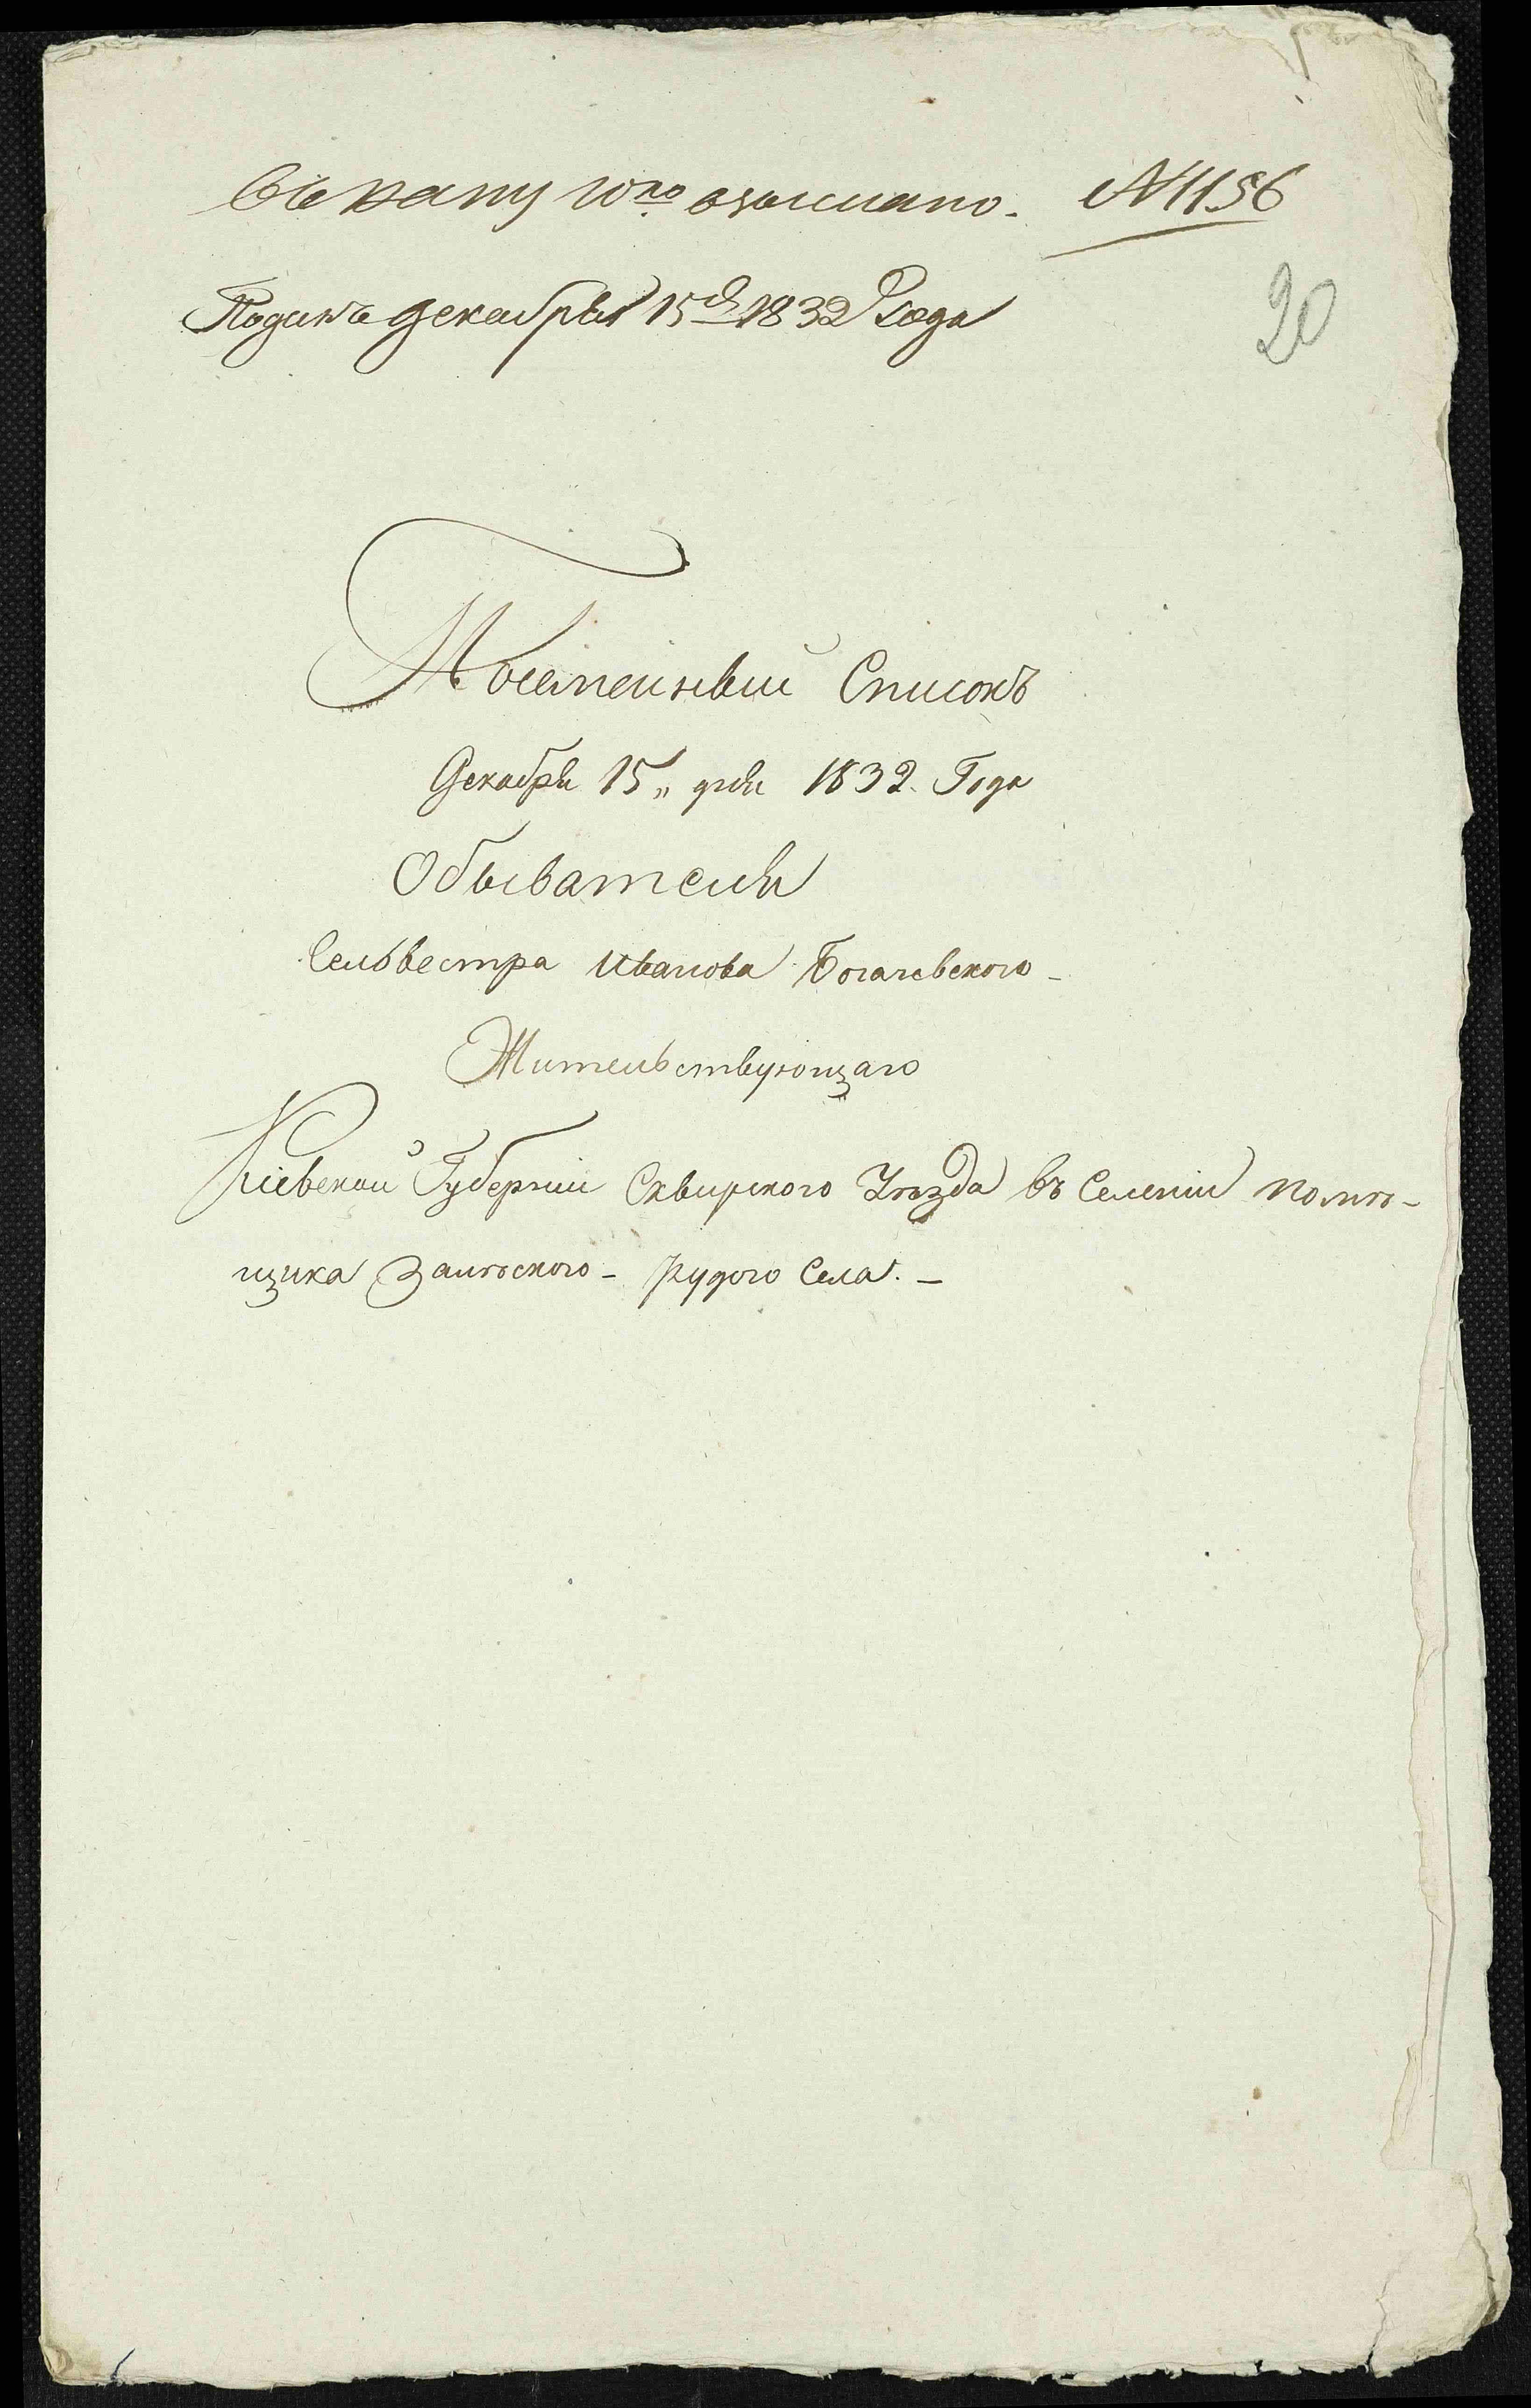 № 1156
Поданъ Декабря 15 д 1832 Года
20
Посемейный Списокъ
Декабря 15„ дня 1832. Года
Обывателя
Сельвестра Иванова Богачевского
Жительствующаго
Кіевской Губерніи Сквирского Уѣзда въ Селеніи помѣ-
щика Залѣского - Рудого Села. -